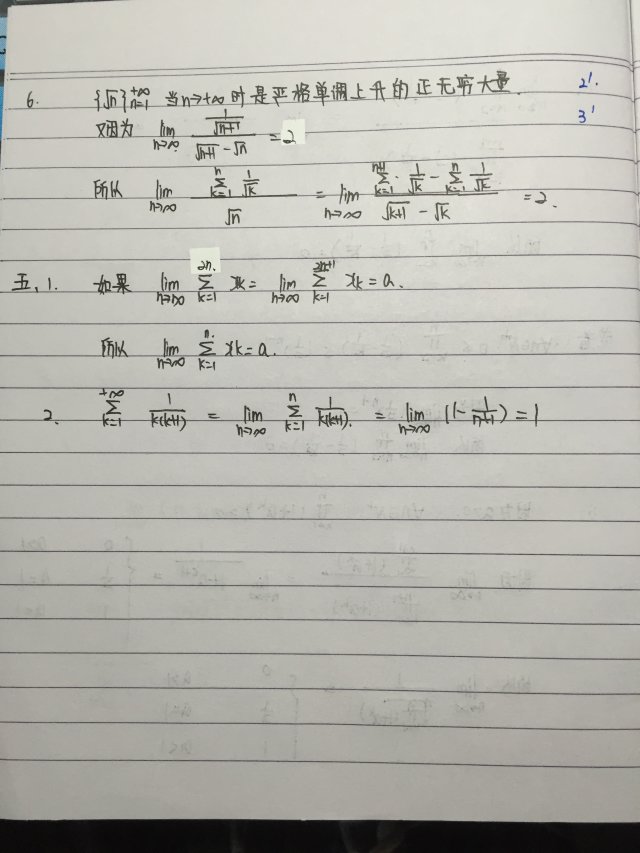 6. {√n}_{n=1}^{+∞} 当n→+∞时是严格单调上升的正无穷大量. 2'
又因为 lim_{n→∞} (1/√(n+1))/(√(n+1)-√n) = 2 3'
所以 lim_{n→∞} (∑_{k=1}^{n} 1/√k)/√n = lim_{n→∞} (∑_{k=1}^{n+1} 1/√k - ∑_{k=1}^{n} 1/√k)/(√(k+1)-√k) = 2.
五, 1. 如果 lim_{n→∞} ∑_{k=1}^{2n} xk = lim_{n→∞} ∑_{k=1}^{2n+1} xk = a.
所以 lim_{n→∞} ∑_{k=1}^{n} xk = a.
2. ∑_{k=1}^{+∞} 1/(k(k+1)) = lim_{n→∞} ∑_{k=1}^{n} 1/(k(k+1)). = lim_{n→∞} (1-1/(n+1)) = 1